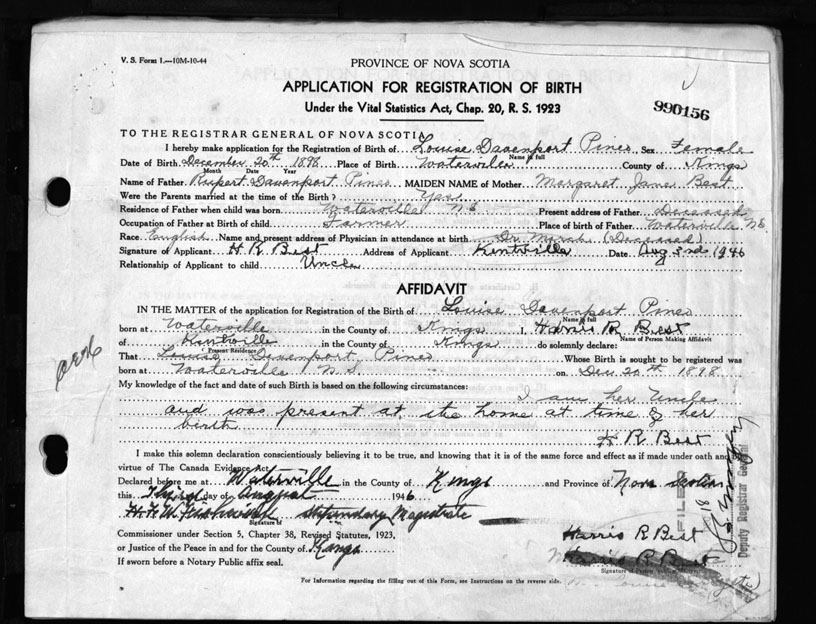 V. S. Form 1.—10M-10-44
PROVINCE OF NOVA SCOTIA
APPLICATION FOR REGISTRATION OF BIRTH
Under the Vital Statistics Act, Chap. 20, R. S. 1923
990156
TO THE REGISTRAR GENERAL OF NOVA SCOTIA
I hereby make application for the Registration of Birth of Louise Davenport Pineo Sex Female
Name in full
Date of Birth December 20th 1898 Place of Birth Waterville County of Kings
Month Date Year
Name of Father Rupert Davenport Pineo MAIDEN NAME of Mother Margaret Jane Best
Were the Parents married at the time of the Birth? Yes
Residence of Father when child was born Waterville N.S. Present address of Father Deceased
Occupation of Father at Birth of child Farmer Place of birth of Father Waterville N.S.
Race English Name and present address of Physician in attendance at birth Dr (Deceased)
Signature of Applicant H R Best Address of Applicant Kentville Date Aug 1946
Relationship of Applicant to child Uncle
AFFIDAVIT
IN THE MATTER of the application for Registration of the Birth of Louise Davenport Pineo
Name in full
born at Waterville in the County of Kings I, Harris R Best
Name of Person Making Affidavit
of Kentville in the County of Kings do solemnly declare:
Present Residence
That Louise Davenport Pineo Whose Birth is sought to be registered was
born at Waterville N.S. on Dec 20th 1898
My knowledge of the fact and date of such Birth is based on the following circumstances:
I am her Uncle
and was present at the home at time of her
birth
H R Best
I make this solemn declaration conscientiously believing it to be true, and knowing that it is of the same force and effect as if made under oath and by
virtue of The Canada Evidence Act.
Declared before me at Waterville in the County of Kings and Province of Nova Scotia
this Third day of August 1946
Stipendiary Magistrate
Signature of
Commissioner under Section 5, Chapter 38, Revised Statutes, 1923,
or Justice of the Peace in and for the County of Kings
If sworn before a Notary Public affix seal.
Harris R Best
Harris R Best
FILED
Deputy Registrar General
For Information regarding the filling out of this Form, see Instructions on the reverse side.